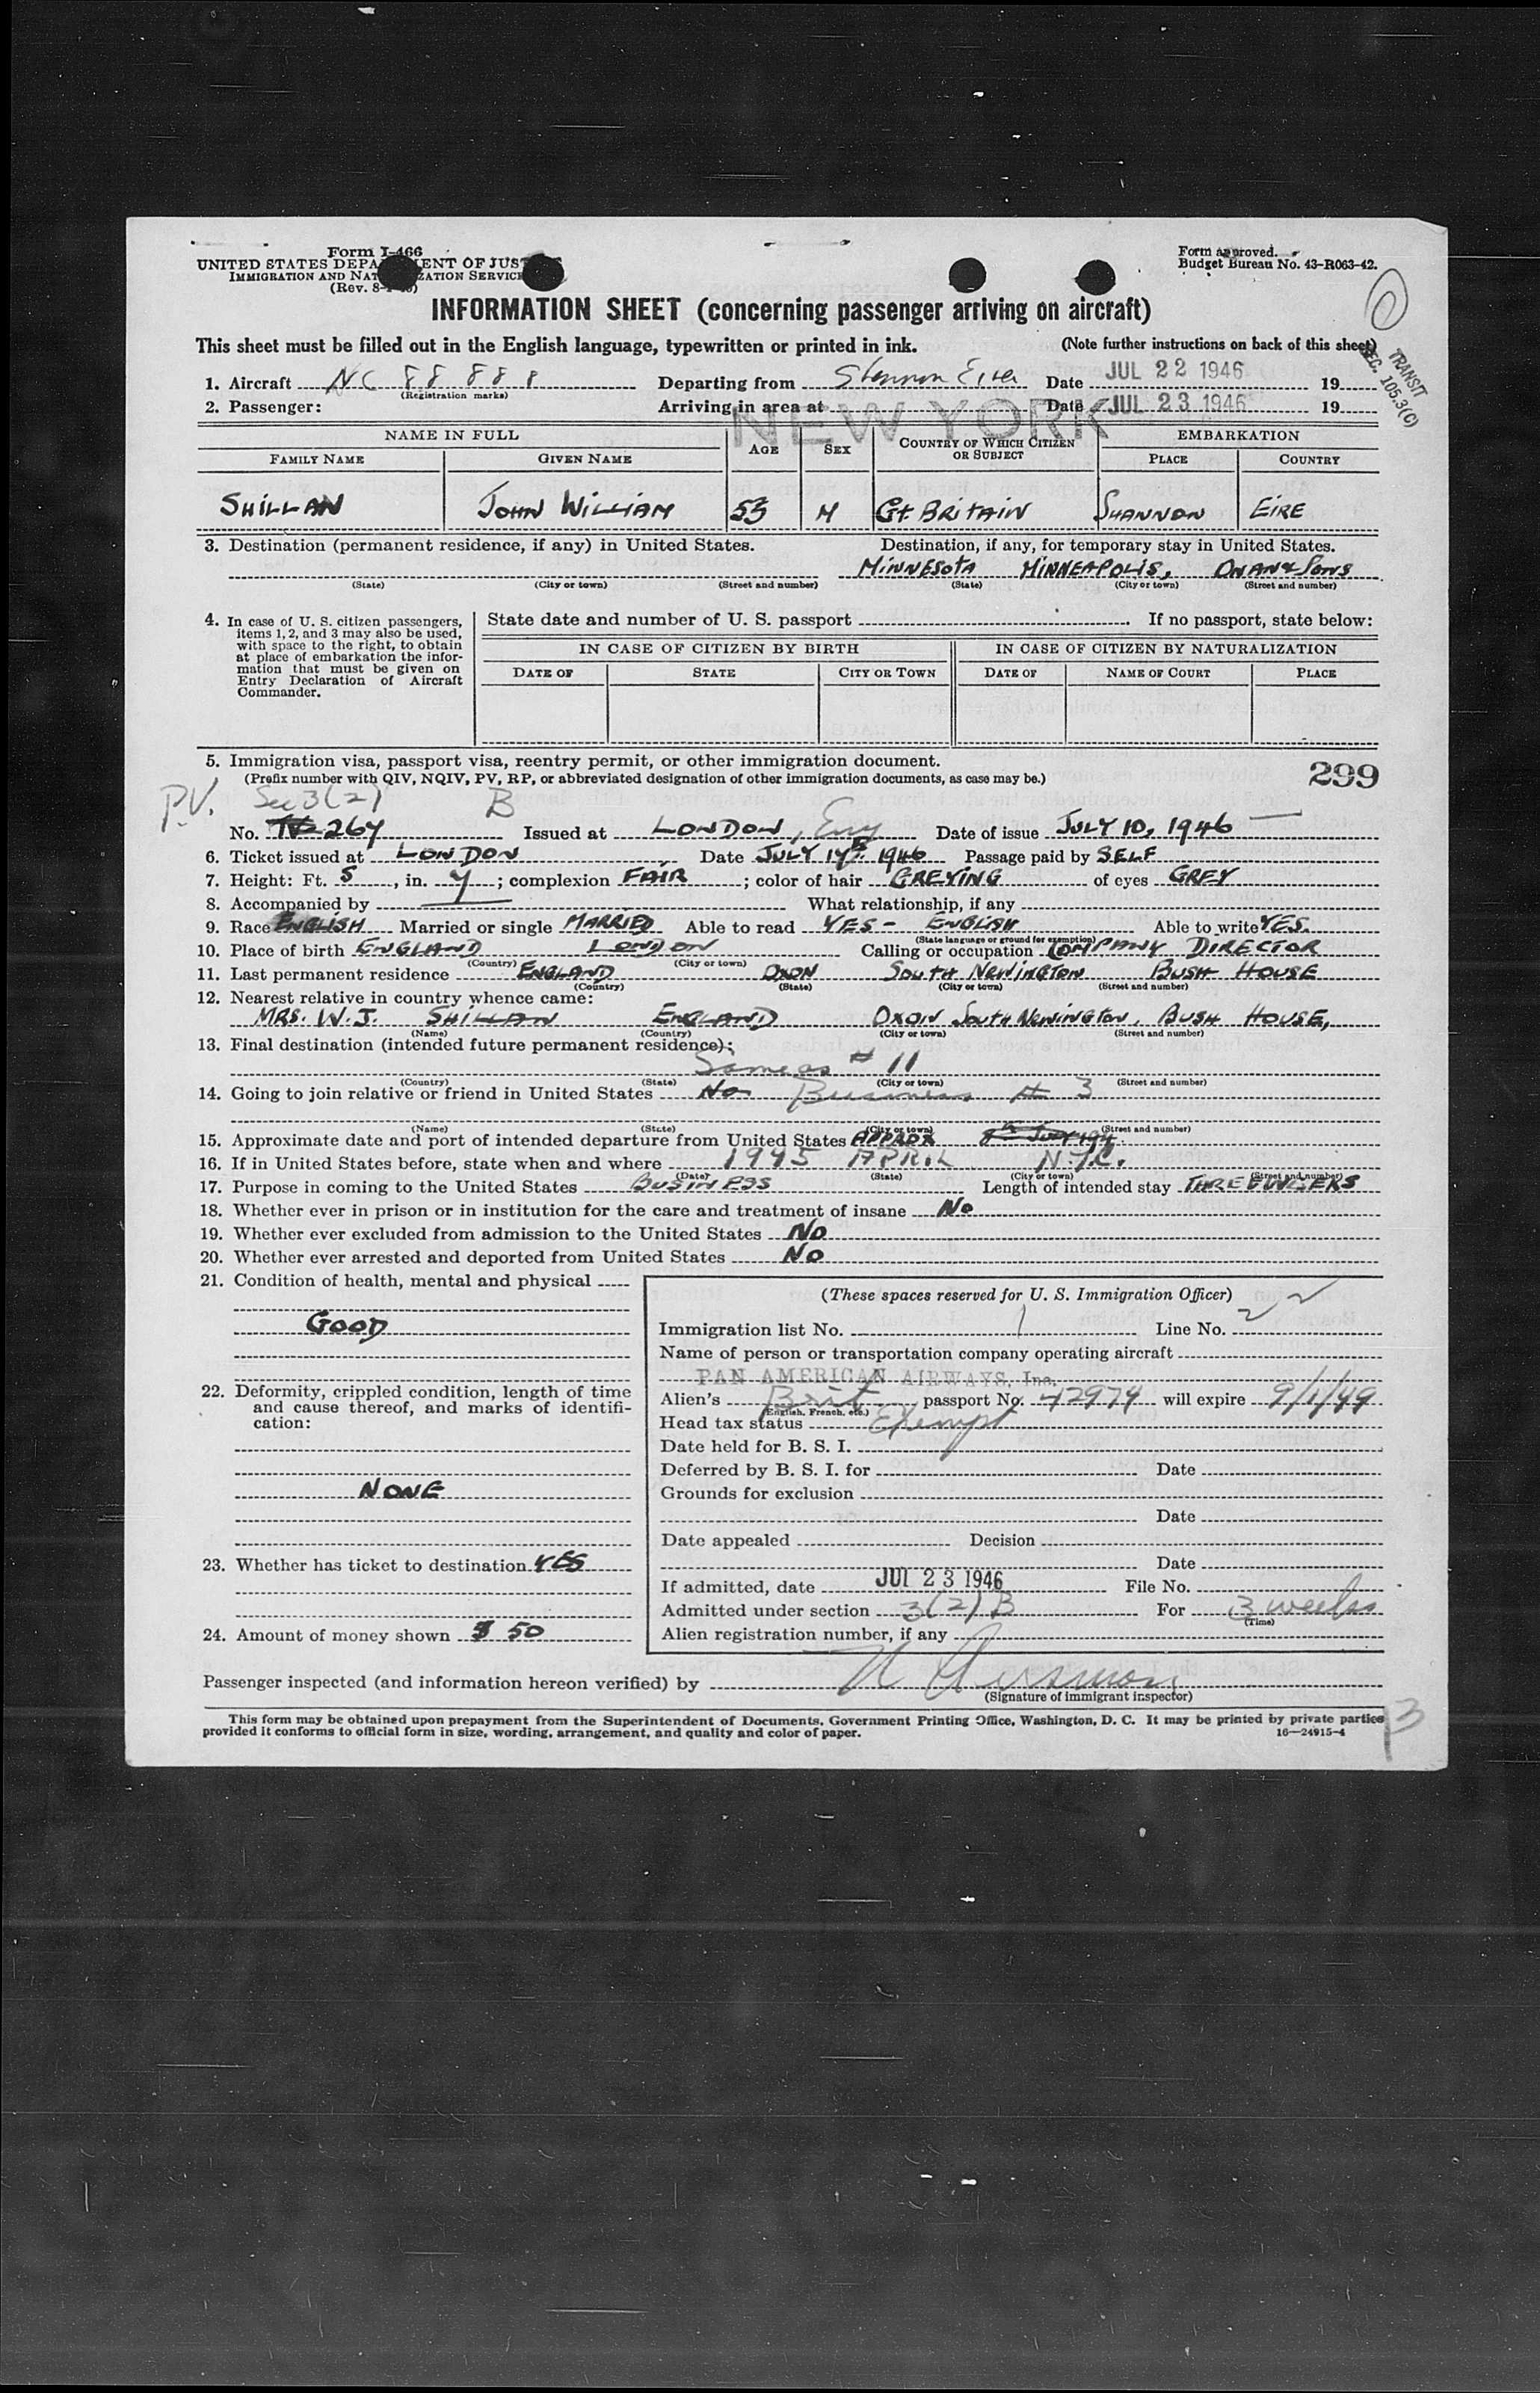 Form I-466
UNITED STATES DEPA ENT OF JUS
IMMIGRATION AND NAT ZATION SERVICE
(Rev. 8-
Form approved.
Budget Bureau No. 43-R063-42.
INFORMATION SHEET (concerning passenger arriving on aircraft)
This sheet must be filled out in the English language, typewritten or printed in ink. (Note further instructions on back of this sheet)
TRANSIT
SEC. 105.3(C)
1. Aircraft NC 88888 Departing from Shannon Eire Date JUL 22 1946 19
(Registration marks)
2. Passenger: Arriving in area at NEW YORK Date JUL 23 1946 19
NAME IN FULL AGE SEX COUNTRY OF WHICH CITIZEN OR SUBJECT EMBARKATION
FAMILY NAME GIVEN NAME PLACE COUNTRY
SHILLAN JOHN WILLIAM 53 M Gt. BRITAIN SHANNON EIRE
3. Destination (permanent residence, if any) in United States. Destination, if any, for temporary stay in United States.
MINNESOTA MINNEAPOLIS, ONAN & SONS
(State) (City or town) (Street and number) (State) (City or town) (Street and number)
4. In case of U. S. citizen passengers, items 1, 2, and 3 may also be used, with space to the right, to obtain at place of embarkation the information that must be given on Entry Declaration of Aircraft Commander.
State date and number of U. S. passport If no passport, state below:
IN CASE OF CITIZEN BY BIRTH IN CASE OF CITIZEN BY NATURALIZATION
DATE OF STATE CITY OR TOWN DATE OF NAME OF COURT PLACE
5. Immigration visa, passport visa, reentry permit, or other immigration document.
(Prefix number with QIV, NQIV, PV, RP, or abbreviated designation of other immigration documents, as case may be.) 299
P.V. Sec 3(2) B
No. 267 Issued at LONDON, Eng Date of issue JULY 10, 1946
6. Ticket issued at LONDON Date JULY 17th 1946 Passage paid by SELF
7. Height: Ft. 5, in. 7; complexion FAIR; color of hair GREYING of eyes GREY
8. Accompanied by What relationship, if any
9. Race ENGLISH Married or single MARRIED Able to read YES - ENGLISH Able to write YES.
(State language or ground for exemption)
10. Place of birth ENGLAND LONDON Calling or occupation COMPANY DIRECTOR
(Country) (City or town)
11. Last permanent residence ENGLAND OXON SOUTH NEWINGTON BUSH HOUSE
(Country) (State) (City or town) (Street and number)
12. Nearest relative in country whence came:
MRS. W. J. SHILLAN ENGLAND OXON SOUTH NEWINGTON, BUSH HOUSE,
(Name) (Country) (City or town) (Street and number)
13. Final destination (intended future permanent residence):
Same as # 11
(Country) (State) (City or town) (Street and number)
14. Going to join relative or friend in United States No Business # 3
(Name) (State) (City or town) (Street and number)
15. Approximate date and port of intended departure from United States APPROX
16. If in United States before, state when and where 1945 APRIL N.Y.C.
(Date) (State) (City or town) (Street and number)
17. Purpose in coming to the United States BUSINESS Length of intended stay THREE WEEKS
18. Whether ever in prison or in institution for the care and treatment of insane No
19. Whether ever excluded from admission to the United States NO
20. Whether ever arrested and deported from United States NO
21. Condition of health, mental and physical
GOOD
22. Deformity, crippled condition, length of time and cause thereof, and marks of identification:
NONE
23. Whether has ticket to destination YES
24. Amount of money shown $ 50
(These spaces reserved for U. S. Immigration Officer)
Immigration list No. 1 Line No. 22
Name of person or transportation company operating aircraft
PAN AMERICAN AIRWAYS, Inc.
Alien's Brit passport No. 42974 will expire 9/1/49
(English, French, etc.)
Head tax status Exempt
Date held for B. S. I.
Deferred by B. S. I. for Date
Grounds for exclusion
Date
Date appealed Decision
Date
If admitted, date JUL 23 1946 File No.
Admitted under section 3(2) B For 3 weeks
(Time)
Alien registration number, if any
Passenger inspected (and information hereon verified) by
(Signature of immigrant inspector)
This form may be obtained upon prepayment from the Superintendent of Documents, Government Printing Office, Washington, D. C. It may be printed by private parties
provided it conforms to official form in size, wording, arrangement, and quality and color of paper. 16—24915-4